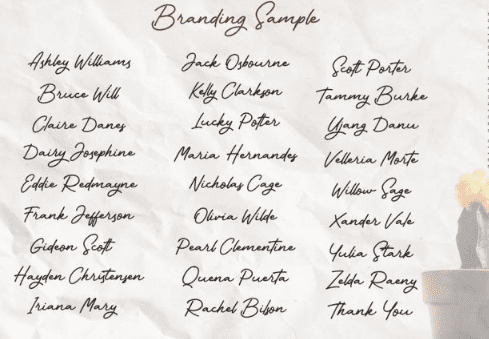 Branding Sample
Ashley Williams
Bruce Will
Claire Danes
Dairy Josephine
Eddie Redmayne
Frank Jefferson
Gideon Scott
Hayden Christensen
Iriana Mary
Jack Osbourne
Kelly Clarkson
Lucky Potter
Maria Hernandes
Nicholas Cage
Olivia Wilde
Pearl Clementine
Quena Puerta
Rachel Bilson
Scott Porter
Tammy Burke
Ujang Danu
Velleria Morte
Willow Sage
Xander Vale
Yulia Stark
Zelda Raeny
Thank You